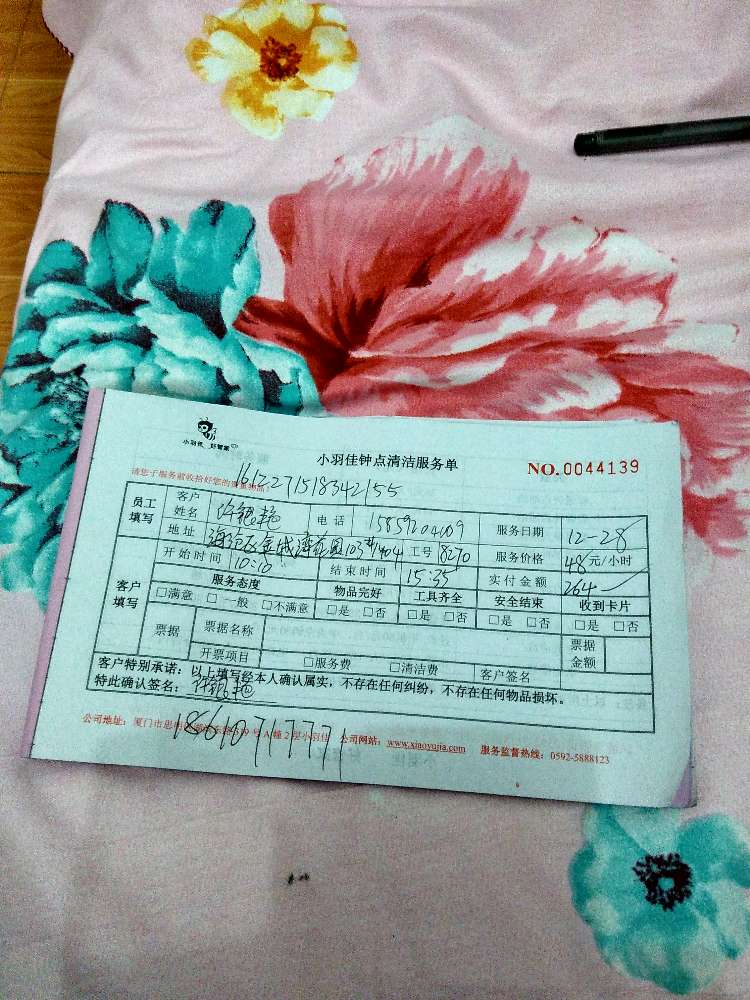 小羽佳 好管家
小羽佳钟点清洁服务单
NO.0044139
请您于服务前收拾好您的贵重物品:
161227151834 2155
员工填写 客户姓名 许银艳 电话 15859204109 服务日期 12-28
地址 1404 工号 8270 服务价格 48元/小时
开始时间 10:10 结束时间 15:55 实付金额 264
客户填写 服务态度 物品完好 工具齐全 安全结束 收到卡片
□满意 □一般 □不满意 □是 □否 □是 □否 □是 □否 □是 □否
票据 票据名称 票据金额
开票项目 □服务费 □清洁费 客户签名
客户特别承诺:以上填写经本人确认属实,不存在任何纠纷,不存在任何物品损坏。
特此确认签名: 许银艳
18610717777
公司地址:厦门市思明区 号A幢2层小羽佳 公司网站:www.xiaoyujia.com 服务监督热线:0592-5888123